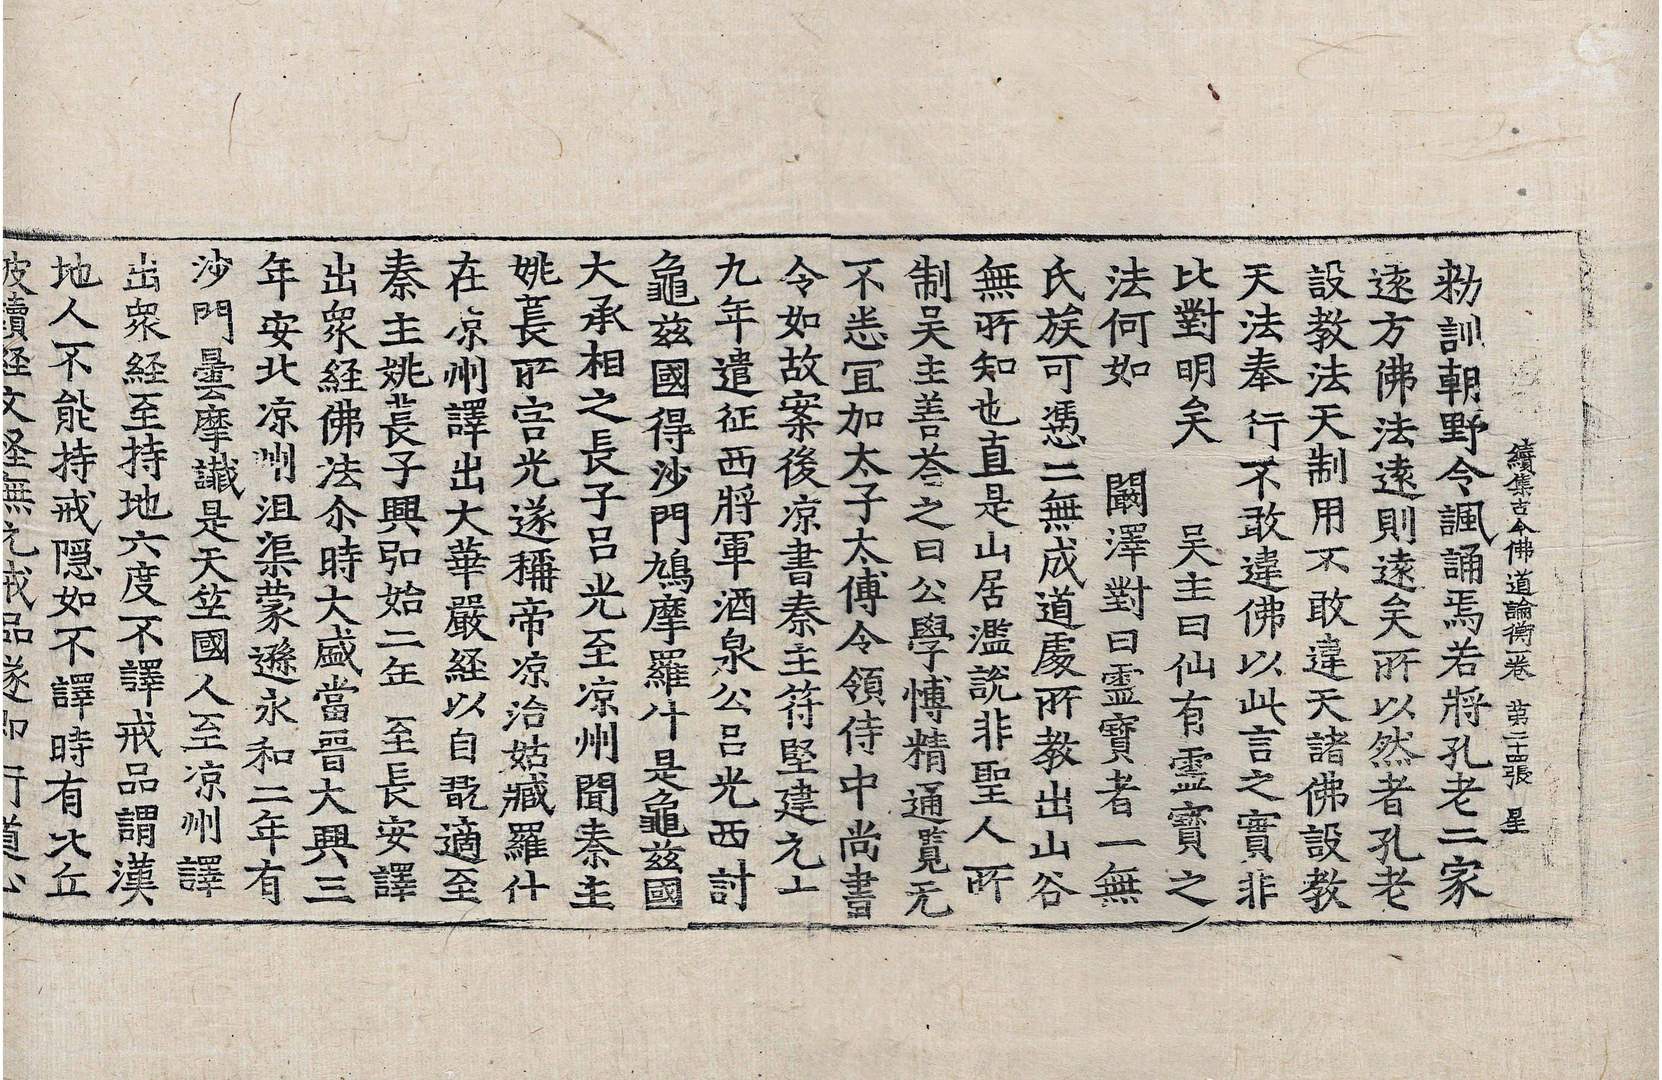 續集古今佛道論衡一卷 第二十四張 星
勑訓朝野令諷誦焉若將孔老二家
逺方佛法逺則逺矣所以然者孔老
設教法天制用不敢違天諸佛設教
天法奉行不敢違佛以此言之實非
比對明矣 吴主曰仙有靈寶之
法何如 闞澤對曰靈寶者一無
氏族可憑二無成道處所教出山谷
無所知也直是山居濫說非聖人所
制吴主善荅之曰公學愽精通覧无
不悉冝加太子太傅令領侍中尚書
令如故案後凉書秦主符堅建元上
九年遣征西將軍酒泉公吕光西討
龜茲國得沙門鳩摩羅什是龜茲國
大承相之長子吕光至凉州聞秦主
姚萇所害光遂稱帝凉治姑臧羅什
在凉州譯出大華嚴経以自翫適至
秦主姚萇子興弘始二年 至長安譯
出衆経佛法尒時大盛當晋大興三
年安北凉州沮渠蒙遜永和二年有
沙門曇摩讖是天竺國人至凉州譯
出衆経至持地六度不譯戒品謂漢
地人不能持戒隠如不譯時有比丘
披讀経文怪無元戒品遂即行道心